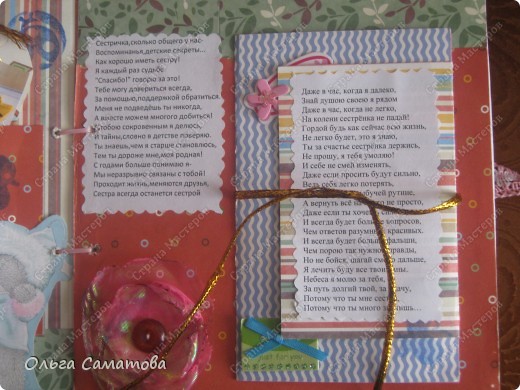 Сестричка,сколько общего у нас
Воспоминанья,детские секреты...
Как хорошо иметь сестру!
Я каждый раз судьбе
"Спасибо!" говорю за это!
Тебе могу довериться всегда,
За помощью,поддержкой обратиться
Меня не подведёшь ты никогда,
А вместе можем многого добиться!
С тобою сокровенным я делюсь,
И тайны,словно в детстве поверяю.
Ты знаешь,чем я старше становлюсь,
Тем ты дороже мне,моя родная!
С годами больше понимаю я-
Мы неразрывно связаны с тобой!
Проходит жизнь,меняются друзья,
Сестра всегда останется сестрой
Даже в час, когда я далеко,
Знай душою своею я рядом
Даже в час, когда на легко,
На колени сестрёнка не падай!
Гордой будь как сейчас всю жизнь,
Не легко будет, это я знаю,
Ты за счастье сестрёнка держись,
Не прошу, я тебя умоляю!
И себе не смей изменять,
Даже если просить будут сильно,
Ведь себя легко потерять,
рутине,
А вернуть всё не просто,
Даже если ты
И всегда будет больше вопросов,
Чем ответов разумных красивых.
И всегда будет больше
Чем порою так нужно правды,
Но не бойся, шагай смело дальше,
Я лечить буду все твои раны.
Небеса я молю за тебя,
За путь долгий твой, за удачу,
Потому что ты мне сестра,
Потому что ты много значишь...
Ольга Саматова